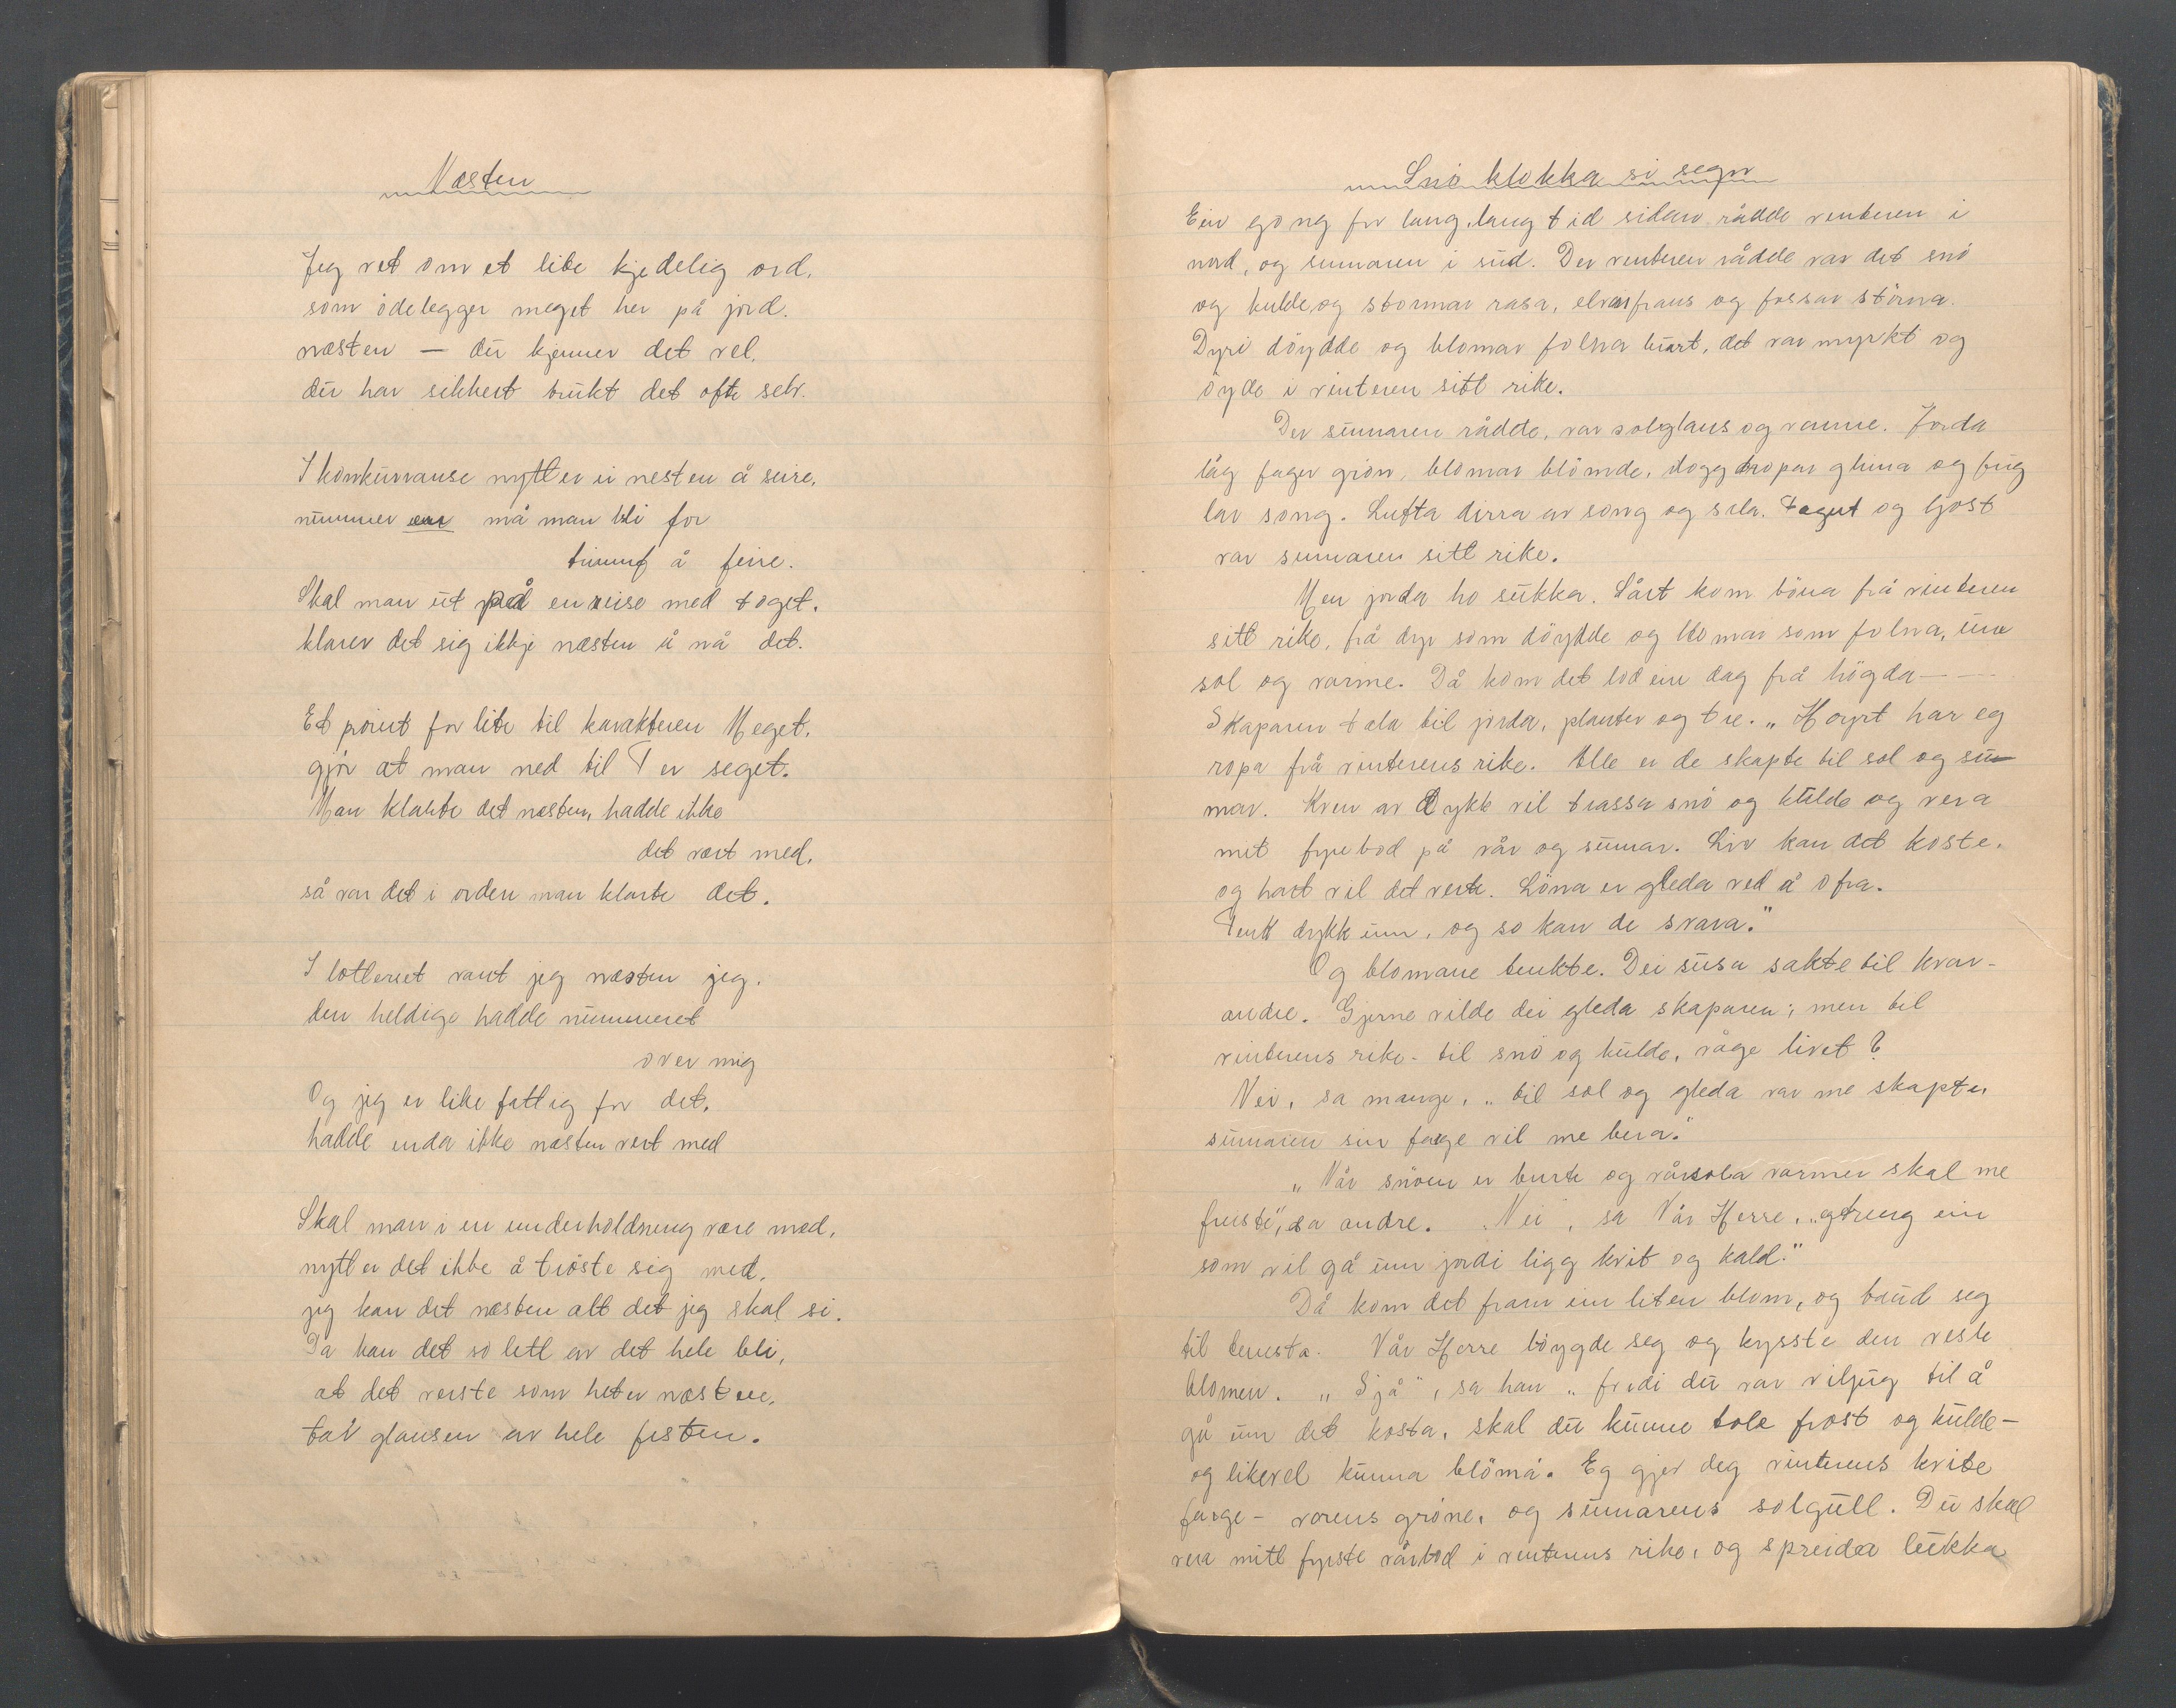 Næsten
Jeg vet om et lite kjedelig ord,
som ödelegger meget her på jord.
næsten — du kjenner det vel,
du har sikkert brukt det ofte selv.
I konkurranse nytter ei nesten å seire,
nummer en må man bli for
triumf å feire.
Skal man ut på en reise med toget,
klarer det sig ikkje næsten å nå det.
Et point for lite til karakteren Meget,
gjör at man ned til T er seget.
Man klarte det næsten, hadde ikke
det vært med,
så var det i orden man klarte det.
I lotteriet vant jeg næsten jeg,
den heldige hadde nummeret
over mig
Og jeg er like fattig for det,
hadde enda ikke næsten vert med
Skal man i en underholdning være med,
nytter det ikke å tröste sig med,
jeg kan det næsten alt det jeg skal si.
Da kan det so lett av det hele bli,
at det verste som heter næsten,
tar glansen av hele festen.
Snö klokka si segn
Ein gong for lang, lang tid sidan rådde venteren i
nord, og sumaren i sud. Der venteren rådde var det snö
og kulde, og stormar rasa, elvar fraus og fossar störna.
Dyri döydde og blomar folna burt, det var myrkt og
öyde i vinteren sitt rike.
Der sumaren rådde, var solglans og varme. Jorda
låg fager grön, blomar blömde, doggdropar glima og fug
lar song. Lufta dirra av song og sæla. Fagert og ljost
var sumaren sitt rike.
Men jorda ho sukka. Sårt kom böna frå vinteren
sitt rike, frå dyr som döydde og blomar som folna, um
sol og varme. Då kom det bod ein dag frå högda — —
Skaparen tala til jorda, planter og tre. „Höyrt har eg
ropa frå vinterens rike. Alle er de skapte til sol og su-
mar. Kven av dykk vil trassa snö og kulde og vera
mit fyrebod på vår og sumar. Liv kan det koste,
og hart vil det verte. Löna er gleda ved å ofra.
Tenk dykk um, og so kan de svara."
Og blomane tenkte. Dei susa sakte til kvar-
andre. Gjerne vilde dei gleda skaparen; men til
vinterens rike - til snö og kulde, våge livet?
Nei, sa mange, „til sol og gleda var me skapte,
sumaren sin farge vil me bera."
„Når snöen er burte og vårsola varmer skal me
freiste", sa andre. „Nei", sa Vår Herre, „eg treng ein
som vil gå um jordi ligg kvit og kald."
Då kom det fram ein liten blom, og baud seg
til tenesta. Vår Herre böygde seg og kysste den vesle
blomen. „Sjå", sa han „fordi du var viljug til å
gå um det kosta, skal du kunne tole frost og kulde -
og likevel kunna blöma. Eg gjev deg vinterens kvite
farge - vårens gröne, og sumarens solgull. Du skal
vera mitt fyrste vårbod i venterens rike, og spreida lukka